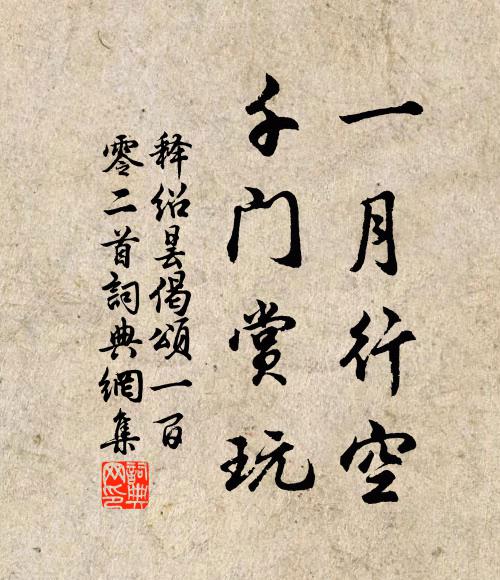 一月行空
千门赏玩
释绍昙偈颂一百
零二首詞典網集
詞典
网印